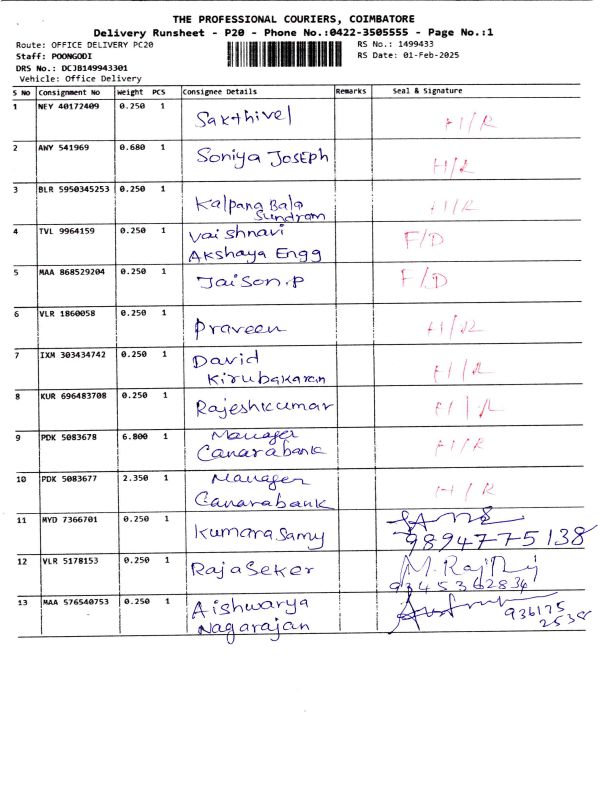 THE PROFESSIONAL COURIERS, COIMBATORE
Delivery Runsheet - P20 - Phone No.:0422-3505555 - Page No.:1
Route: OFFICE DELIVERY PC20 RS No.: 1499433
Staff: POONGODI RS Date: 01-Feb-2025
DRS No.: DCJB149943301
Vehicle: Office Delivery
S No Consignment No Weight PCS Consignee Details Remarks Seal & Signature
1 NEY 40172409 0.250 1 Sakthivel H/R
2 AWY 541969 0.680 1 Soniya JosEph H/R
3 BLR 5950345253 0.250 1 Kalpana Bala H/R
Sundram
4 TVL 9964159 0.250 1 Vaishnavi F/D
Akshaya Engg
5 MAA 868529204 0.250 1 Jaison.P F/D
6 VLR 1860058 0.250 1 Praveen H/R
7 IXM 303434742 0.250 1 David H/R
Kirubakaran
8 KUR 696483708 0.250 1 Rajeshkumar H/R
9 PDK 5083678 6.800 1 Manager H/R
Canarabank
10 PDK 5083677 2.350 1 Manager H/R
Canarabank
11 MYD 7366701 0.250 1 Kumarasamy
9894775138
12 VLR 5178153 0.250 1 RajaSeker
9345362834
13 MAA 576540753 0.250 1 Aishwarya 936175
Nagarajan 2538